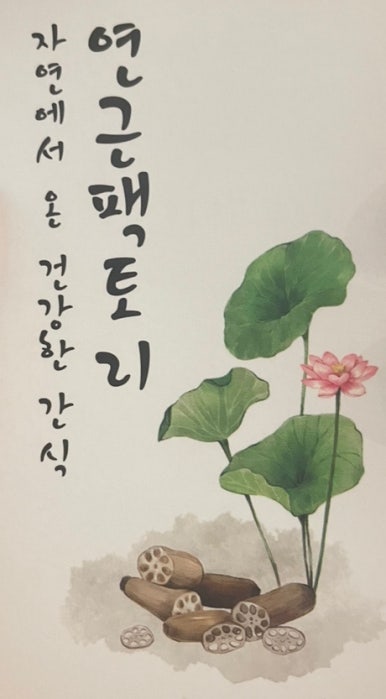 연근팩토리
자연에서 온 건강한 간식